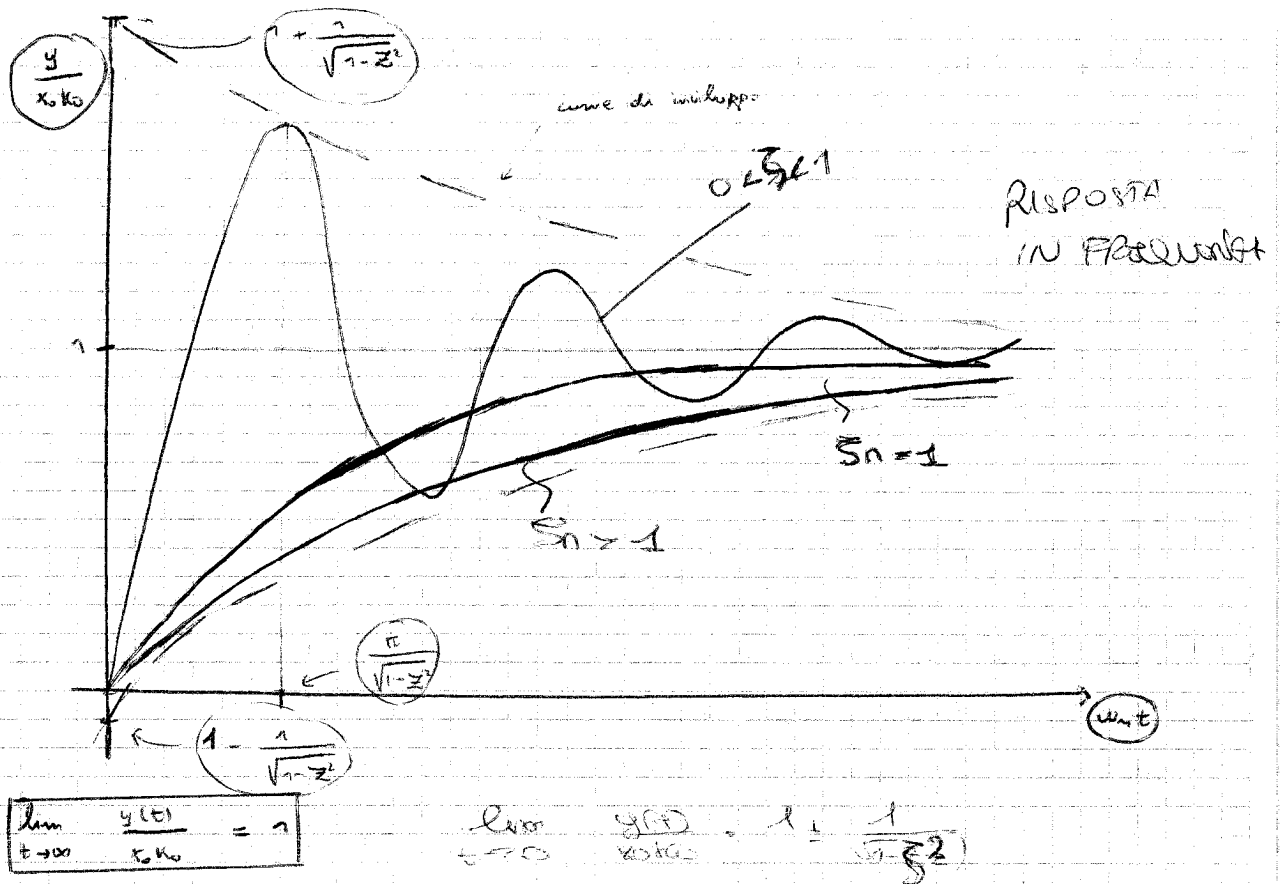 1 + 1/√(1-z²)
y/(x₀k₀)
curve di inviluppo
0<ξ<1
RISPOSTA
IN FREQUENZA
1
ξn = 1
ξn > 1
π/√(1-z²)
ωₙt
1 - 1/√(1-z²)
lim t→∞ y(t)/(x₀k₀) = 1
lim t→0 y(t)/(x₀k₀) = 1 ± 1/√(1-ξ²)